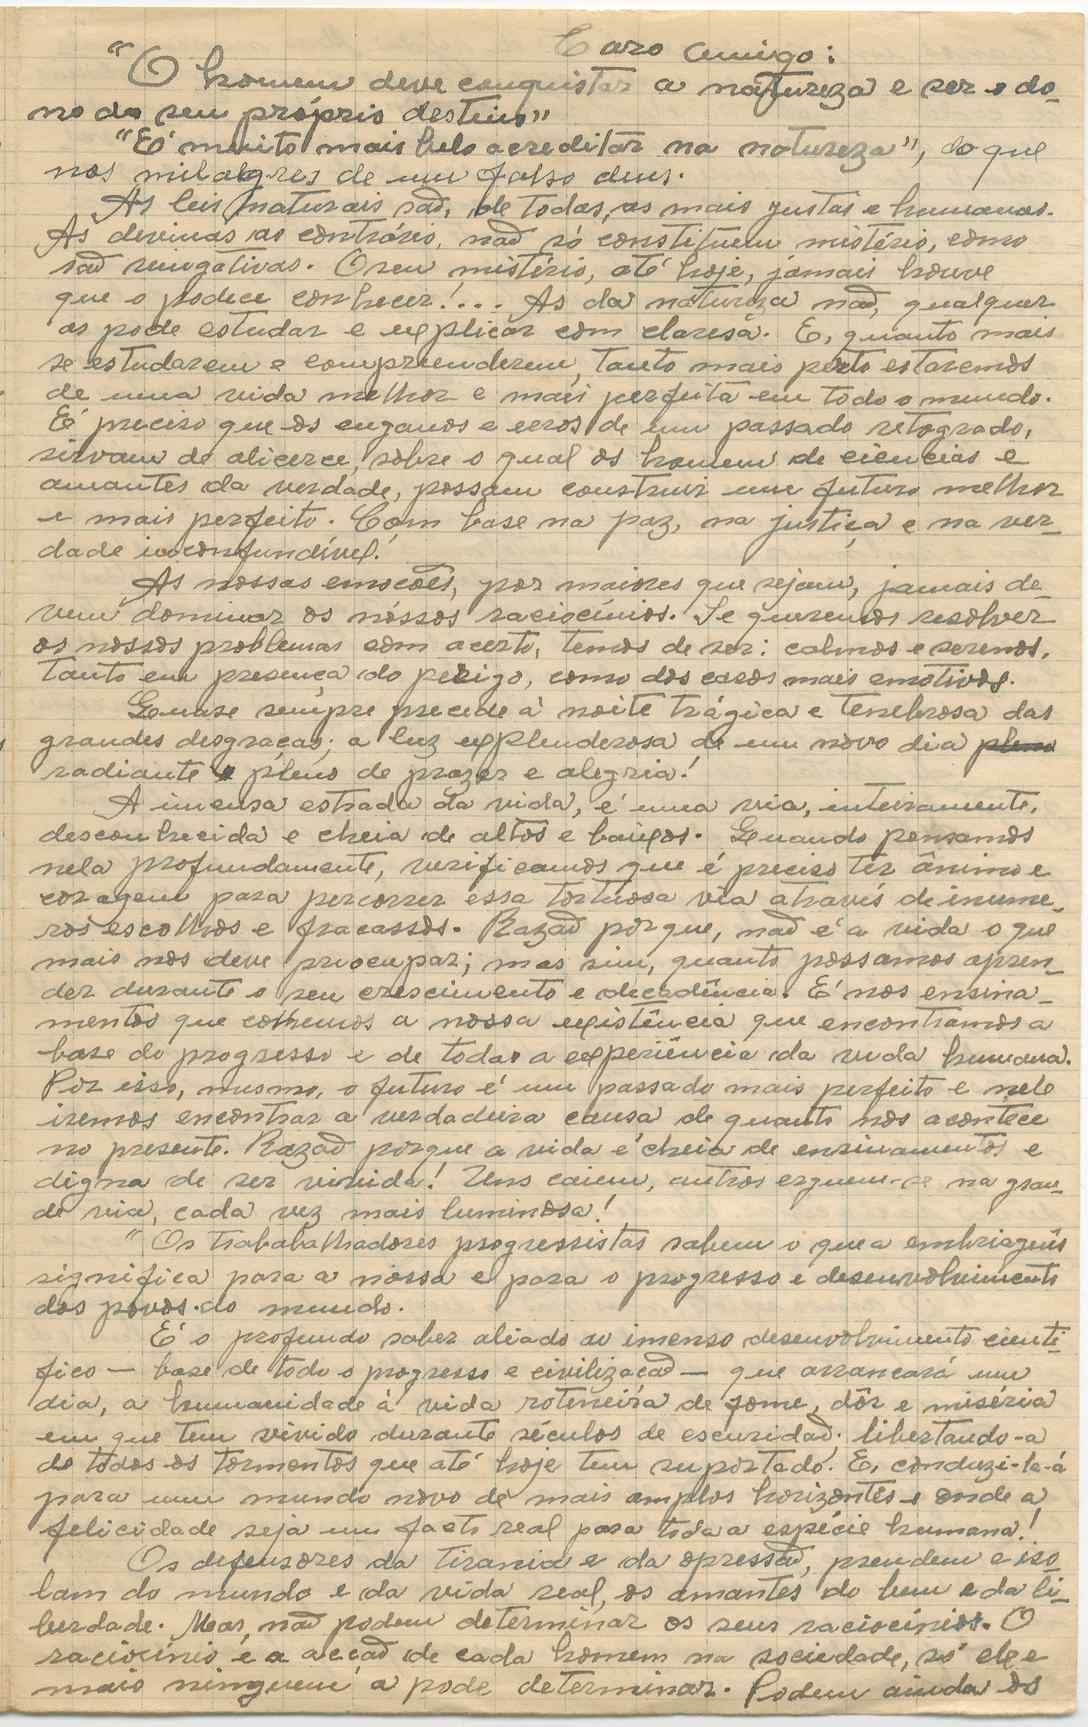 Caro amigo:
"O homem deve conquistar a natureza e ser o do-
no do seu próprio destino"
"É muito mais belo acreditar na natureza", do que
nos milagres de um falso deus.
As leis naturais são, de todas, as mais justas e humanas.
As divinas ao contrário, não só constituem mistério, como
são vingativas. O seu mistério, até hoje, jamais houve
que o podece conhecer!... As da natureza não, qualquer
as pode estudar e explicar com claresa. E, quanto mais
se estudarem e compreenderem, tanto mais perto estaremos
de uma vida melhor e mais perfeita em todo o mundo.
É preciso que os enganos e erros de um passado retogrado,
sirvam de alicerce, sobre o qual os homem de ciencias e
amantes da verdade, possam construir um futuro melhor
e mais perfeito. Com base na paz, na justiça e na ver-
dade inconfundível!
As nossas emocões, por maiores que sejam, jamais de-
vem dominar os nóssos raciocínios. Se queremos resolver
os nossos problemas com acerto, temos de ser: calmos e serenos,
tanto em presença do perigo, como dos casos mais emotivos.
Quase sempre precede à noite trágica e tenebrosa das
grandes desgraças; a luz explenderosa de um novo dia pleno
radiante e pleno de prazer e alegria!
A imensa estrada da vida, é uma via, inteiramente,
desconhecida e cheia de altos e baixos. Quando pensamos
nela profundamente, verificamos que é preciso ter ânimo e
coragem para percorrer essa tortuosa via através de inume-
ros escolhos e fracassos. Razão porque, não é a vida o que
mais nos deve preocupar; mas sim, quanto possamos apren-
der durante o seu crescimento e decadência. É nos ensina-
mentos que colhemos a nossa existência que encontramos a
base do progresso e de toda a experiência da vida humana.
Por isso, mesmo, o futuro é um passado mais perfeito e nele
iremos encontrar a verdadeira causa de quanto nos acontece
no presente. Razão porque a vida é cheia de ensinamentos e
digna de ser vivida! Uns caiem, outros erguem-se na gran-
de via, cada vez mais luminosa!
"Os trababalhadores progressistas sabem o que a embriagês
significa para a nossa e para o progresso e desenvolvimento
dos povos do mundo.
É o profundo saber aliado ao imenso desenvolvimento cienti-
fico — base de todo o progresso e civilizacão — que arrancará um
dia, a humanidade à vida rotineira de fome, dôr e miséria
em que tem vivido durante séculos de escuridão; libertando-a
de todos os tormentos que até hoje tem suportado. E, conduzi-la-á
para um mundo novo de mais amplos horizontes e onde a
felicidade seja um facto real para toda a espécie humana!
Os defensores da tirania e da opressão, prendem e iso
lam do mundo e da vida real, os amantes do bem e da li-
berdade. Mas, não podem determinar os seus raciocínios. O
raciocínio e a accão de cada homem na sociedade, só ele e
mais ninguem a pode determinar. Podem ainda os